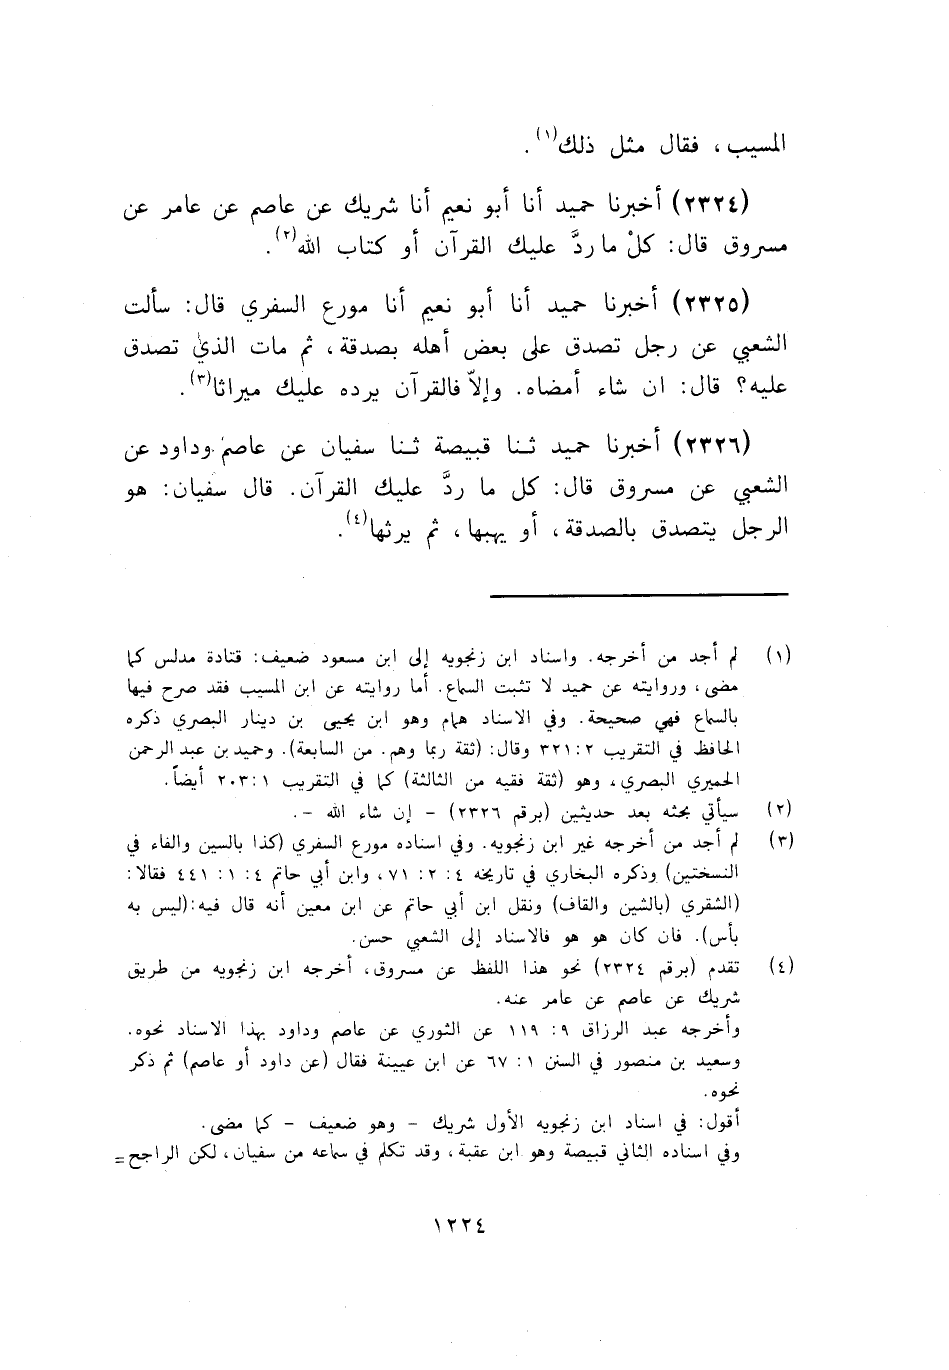 المسيب، فقال مثل ذلك(١).
(٢٣٢٤) أخبرنا حميد أنا أبو نعيم أنا شريك عن عاصم عن عامر عن
مسروق قال: كلْ ما ردَّ عليك القرآن أو كتاب الله(٢).
(٢٣٢٥) أخبرنا حميد أنا أبو نعيم أنا مورع السفري قال: سألت
الشعبي عن رجل تصدق على بعض أهله بصدقة، ثم مات الذي تصدق
عليه؟ قال: ان شاء أمضاه. وإلاّ فالقرآن يرده عليك ميراثا(٣).
(٢٣٢٦) أخبرنا حميد ثنا قبيصة ثنا سفيان عن عاصم وداود عن
الشعبي عن مسروق قال: كل ما ردَّ عليك القرآن. قال سفيان: هو
الرجل يتصدق بالصدقة، أو يهبها، ثم يرثها(٤).
(١) لم أجد من أخرجه. واسناد ابن زنجويه إلى ابن مسعود ضعيف: قتادة مدلس كما
مضى، وروايته عن حميد لا تثبت السماع. أما روايته عن ابن المسيب فقد صرح فيها
بالسماع فهي صحيحة. وفي الاسناد همام وهو ابن يحيى بن دينار البصري ذكره
الحافظ في التقريب ٢: ٣٢١ وقال: (ثقة ربما وهم. من السابعة). وحميد بن عبد الرحمن
الحميري البصري، وهو (ثقة فقيه من الثالثة) كما في التقريب ١: ٢٠٣ أيضاً.
(٢) سيأتي بحثه بعد حديثين (برقم ٢٣٢٦) - إن شاء الله -.
(٣) لم أجد من أخرجه غير ابن زنجويه. وفي اسناده مورع السفري (كذا بالسين والفاء في
النسختين) وذكره البخاري في تاريخه ٤: ٢: ٧١، وابن أبي حاتم ٤: ١: ٤٤١ فقالا:
(الشقري (بالشين والقاف) ونقل ابن أبي حاتم عن ابن معين أنه قال فيه: (ليس به
بأس). فان كان هو هو فالاسناد إلى الشعبي حسن.
(٤) تقدم (برقم ٢٣٢٤) نحو هذا اللفظ عن مسروق، أخرجه ابن زنجويه من طريق
شريك عن عاصم عن عامر عنه.
وأخرجه عبد الرزاق ٩: ١١٩ عن الثوري عن عاصم وداود بهذا الاسناد نحوه.
وسعيد بن منصور في السنن ١: ٦٧ عن ابن عيينة فقال (عن داود أو عاصم) ثم ذكر
نحوه.
أقول: في اسناد ابن زنجويه الأول شريك - وهو ضعيف - كما مضى.
وفي اسناده الثاني قبيصة وهو ابن عقبة، وقد تكلم في سماعه من سفيان، لكن الراجح =
١٢٢٤